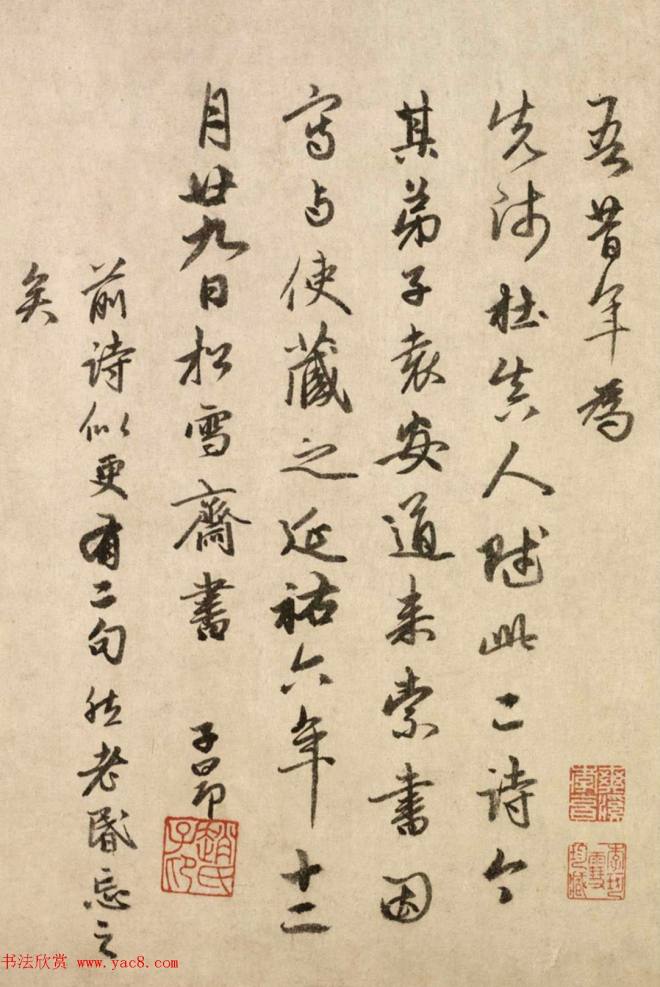 吾昔年為
先師杜真人賦此二詩今
其弟子袁安道来索書因
寫与使藏之延祐六年十二
月廿九日松雪齋書 子昂
前詩似更有二句然老昬忘之
矣
趙氏子印
书法欣赏 www.yac8.com